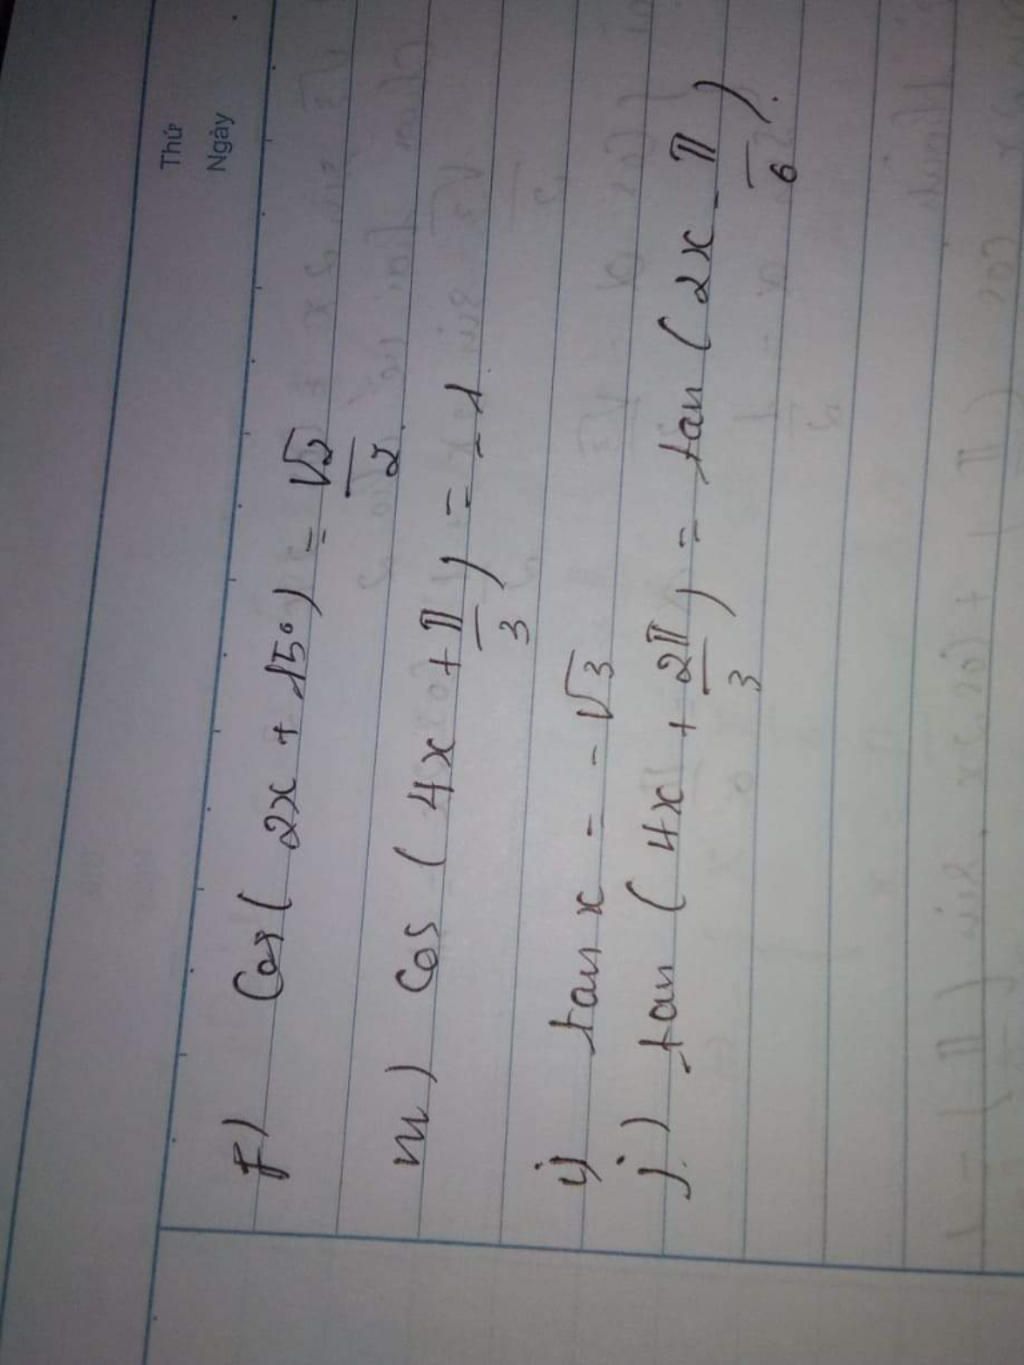 Thứ
Ngày
f) Cos( 2x + 15°) = √2/2
m) cos ( 4x + π/3 ) = -1
i) tan x = -√3
j) tan ( 4x + 2π/3 ) = tan ( 2x - π/6 ).